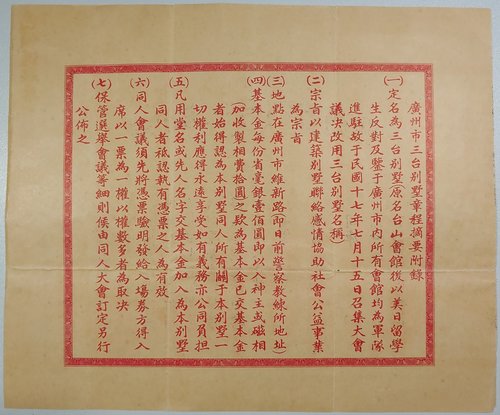 廣州市三台別墅章程摘要附錄
(一)定名為三台別墅原名台山會館後以美日留學
生反對及鑒于廣州市內所有會館均為軍隊
進駐故于民國十七年七月十五日召集大會
議决改用三台別墅名稱
(二)宗旨以建築別墅聯絡感情協助社會公益事業
為宗旨
(三)地點在廣州市維新路(即日前警察教練所地址)
(四)基本金每份省毫銀壹佰圓即以入神主或磁相
(加收製相費拾圓)之欵為基本金已交基本金
者始得認為本別墅同人所有關于本別墅一
切權利應得永遠享受如有義務亦公同負担
(五)凡用堂名或先人名字交基本金加入為本別墅
同人者祗認執有憑票之人為有效
(六)同人會議須先將憑票驗明發給入場券方得入
席以一票為一權以權數多者為取决
(七)保管選舉會議等細則候由同人大會訂定另行
公佈之